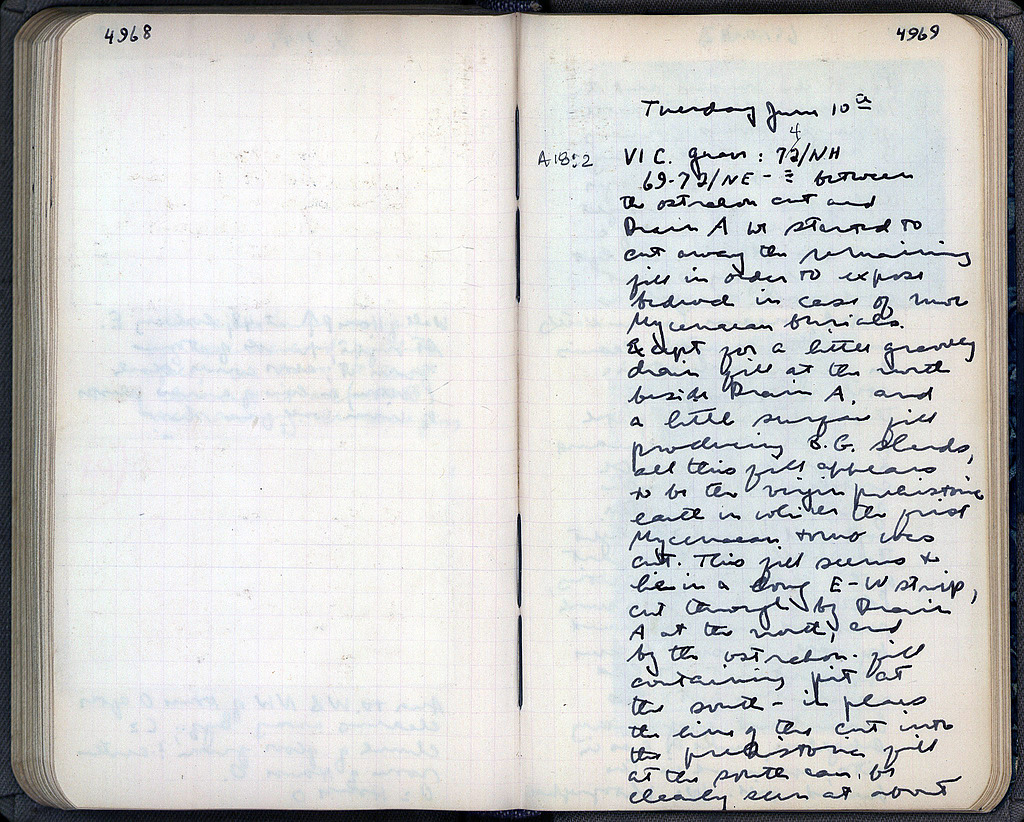 4968
4969
Tuesday June 10th
4
A 18:2 VI C. grave : 72/NH
69-72/NE - between
the ostrakon cut and
Drain A we started to
cut away the remaining
fill in order to expose
bedrock in case of more
Mycenaean burials.
Except for a little gravelly
drain fill at the north
beside Drain A, and
a little surface fill
producing B.G. sherds,
all this fill appears
to be the virgin prehistoric
earth in which the first
Mycenaean tomb was
cut. This fill seems to
be in a long E-W strip,
cut through by Drain
A at the north, and
by the ostrakon fill
containing pit at
the south - in places
the line of the cut into
the prehistoric fill
at the south can be
clearly seen at about